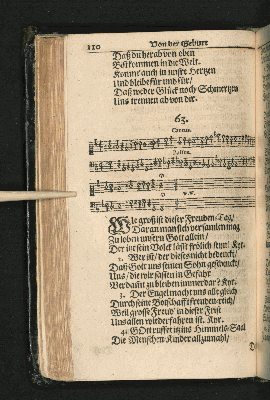 110 Von der Geburt
Daß du her ab von oben
Bist kommen in die Welt.
Komm auch in unsre Hertzen
Und bleibe für und für/
Daß weder Glück noch Schmertzen
Uns trennen ab von dir.
63.
Cantus.
Bassus.
Wie groß ist dieser Freuden-Tag/
Daran man sich versamlen mag
Zu loben unsern Gott allein/
Der wil sein Volck läßt frölich seyn! Kyr.
2. Wer ist/ der dieses nicht bedenckt/
Daß Gott uns seinen Sohn geschenckt/
Uns/ die wir sassen in Gefahr
Verdamt zu bleiben immerdar? Kyr.
3. Der Engel macht uns alle gleich
Durch seine Botschafft freuden-reich/
Weil grosse Freud' in dieser Frist
Uns allen wiederfahren ist. Kyr.
4. GOtt ruffet itz ins Himmels-Saal
Die Menschen-Kinder allzumahl/